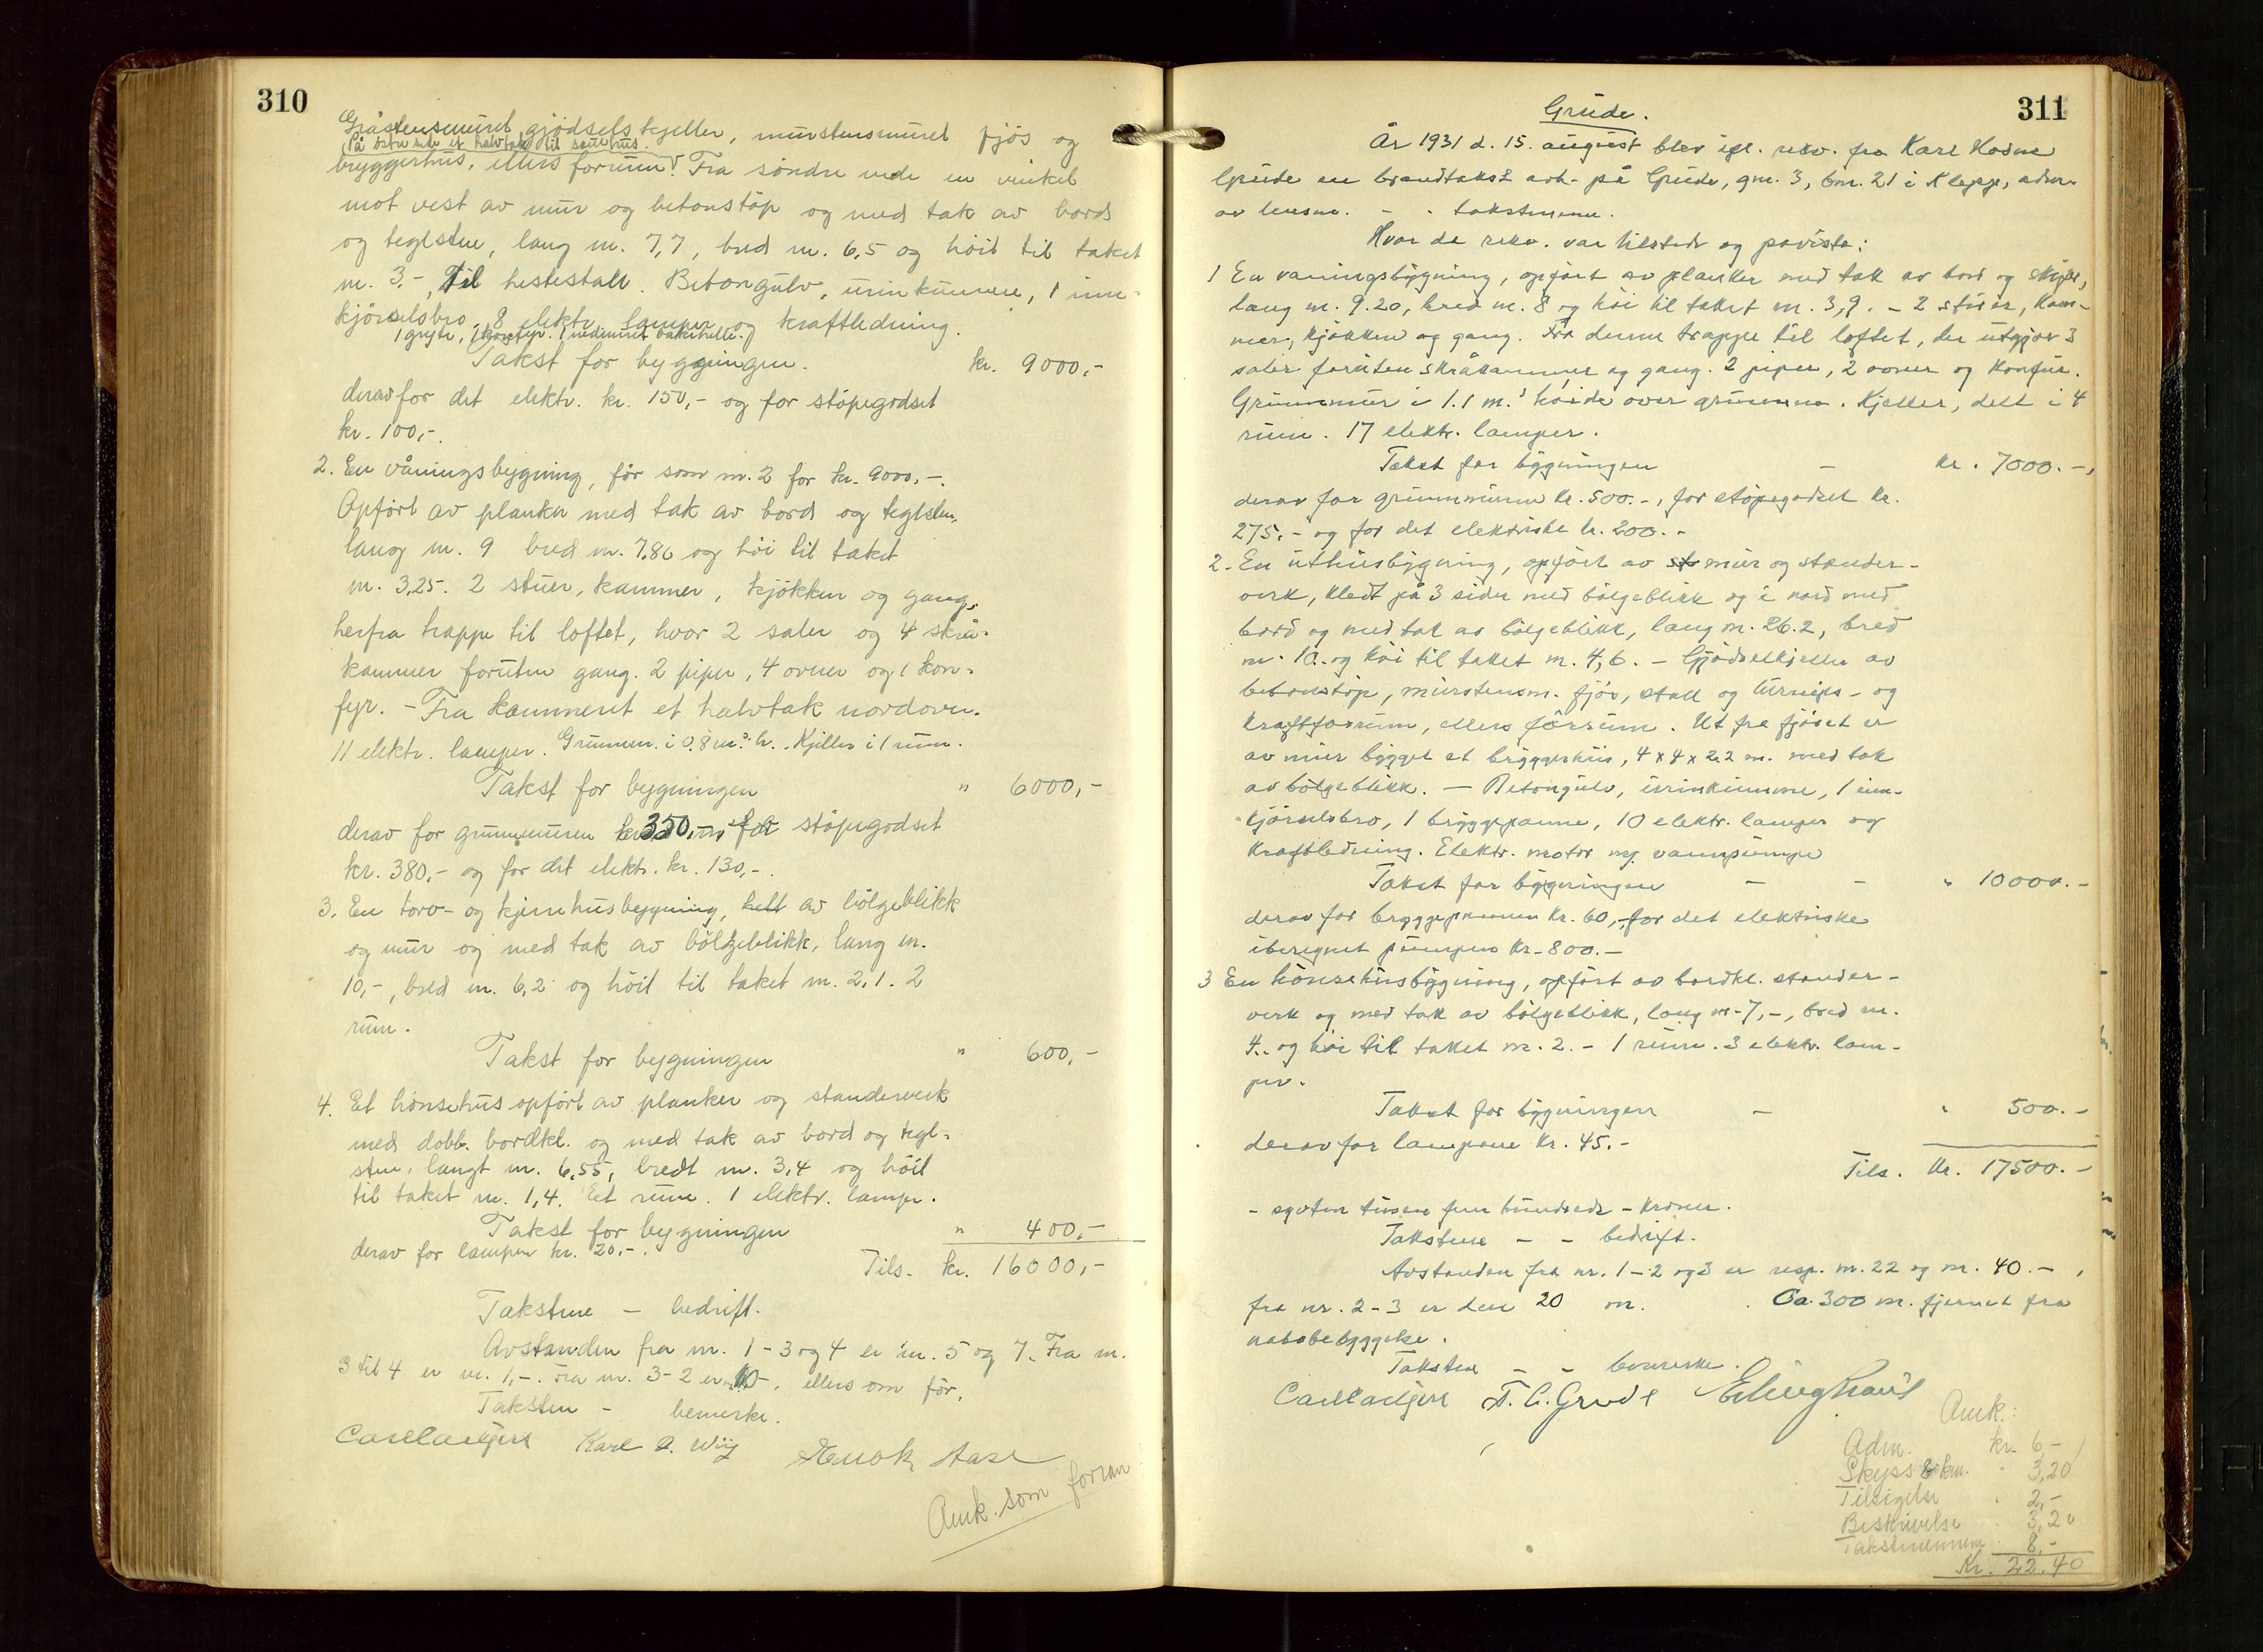 310
Gråstensmuret gjødselskjeller, murstensmuret fjøs og
På østre side et halvtak til sauehus.
bryggerhus, ellers forrum. Fra søndre ende en vinkel
mot vest av mur og betonstøp og med tak av bord
og teglsten, lang m. 7,7, bred m. 6,5 og høit til taket
m. 3.-, Til hestestall. Betongulv, urinkumme, 1 inn-
kjørselsbro, 8 elektr. lamper og kraftledning.
1 gryte, 1 komfyr. 1 nedmuret bakehelle.
Takst for bygningen. kr. 9000,-
derav for det elektr. kr. 150,- og for støpegodset
kr. 100,-.
2. En våningsbygning, før som nr. 2 for kr. 9000,-.
Opført av planker med tak av bord og teglsten,
lang m. 9 bred m. 7.80 og høi til taket
m. 3,25. 2 stuer, kammer, kjøkken og gang,
herfra trappe til loftet, hvor 2 saler og 4 skrå-
kammer foruten gang. 2 piper, 4 ovner og 1 kom-
fyr. - Fra kammeret et halvtak nordover.
11 elektr. lamper. Grunnm. i 0.8 m.s h. Kjeller i 1 rum.
Takst for bygningen " 6000,-
derav for grunnmuren kr. 350,- for støpegodset
kr. 380,- og for det elektr. kr. 130,-.
3. En torv- og kjerrehusbygning, helt av bølgeblikk
og mur og med tak av bølgeblikk, lang m.
10,-, bred m. 6,2 og høit til taket m. 2,1. 2
rum.
Takst for bygningen " 600,-
4. Et hønsehus opført av planker og standerverk
med dobb. bordkl. og med tak av bord og tegl-
sten, langt m. 6,55, bredt m. 3,4 og høit
til taket m. 1,4. Et rum. 1 elektr. lampe.
Takst for bygningen " 400,-
derav for lampen kr. 20,-.
Tils. kr. 16000,-
Takstene - bedrift.
Avstanden fra nr. 1-3 og 4 er m. 5 og 7. Fra nr.
3 til 4 er m. 1,-. Fra nr. 3-2 er 10-, ellers som før.
Taksten - bemerke.
Karl O. Wiig Enok Aase
Ank. som forran
311
Grude.
År 1931 d. 15. august blev igl. rekv. fra Karl Hodne
Grude en brandtakst avh. på Grude, gnr. 3, bnr. 21 i Klepp, adm.
av lensm. - - takstmenn.
Hvor de rekv. var tilstede og påviste:
1 En vaningsbygning, opført av planker med tak av bord og skifer,
lang m. 9.20, bred m. 8 og høi til taket m. 3,9. - 2 stuer, kam-
mer, kjøkken og gang. Fra denne trappe til loftet, der utgjør 3
saler foruten skråkammer og gang. 2 piper, 2 ovner og komfur.
Grunnmur i 1.1 m.s høide over grunnen. Kjeller, delt i 4
rum. 17 elektr. lamper.
Takst for bygningen - kr. 7000.-,
derav for grunnmuren kr. 500.-, for støpegodset kr.
275.- og for det elektriske kr. 200.-
2. En uthusbygning, opført av st mur og stander-
verk, kledt på 3 sider med bølgeblikk og i nord med
bord og med tak av bølgeblikk, lang m. 26.2, bred
m. 10.- og høi til taket m. 4,6. - Gjødselkjeller av
betonstøp, murstensm. fjøs, stall og turnips- og
kraftforrum, ellers førrum. Ut fra fjøset er
av mur bygget et bryggerhus, 4 x 4 x 2.2 m. med tak
av bølgeblikk. - Betongulv, urinkumme, 1 inn-
kjørselsbro, 1 bryggepanne, 10 elektr. lamper og
kraftledning. Elektr. motor m/ vannpumpe
Takst for bygningen - - " 10000.-
derav for bryggepannen kr. 60,- for det elektriske
iberegnet pumpen kr. 800.-
3 En hønsehusbygning, opført av bordkl. stander-
verk og med tak av bølgeblikk, lang m. 7,-, bred m.
4.- og høi til taket m. 2.- 1 rum. 3 elektr. lam-
per.
Takst for bygningen - " 500.-
derav for lampene kr. 45.-
Tils. kr. 17500.-
- sytten tusen fem hundrede - kroner.
Takstene - - bedrift.
Avstanden fra nr. 1-2 og 3 er resp. m. 22 og m. 40.-,
fra nr. 2-3 er den 20 m. Ca. 300 m. fjernet fra
nabobebyggelse.
Taksten - - bemerke.
T. G. Grude
Ank.:
Adm. kr. 6-
Skyss 8 km. " 3,20
Tilsigelse " 2,-
Beskrivelse " 3,20
Takstmennene 8,-
Kr. 22.40